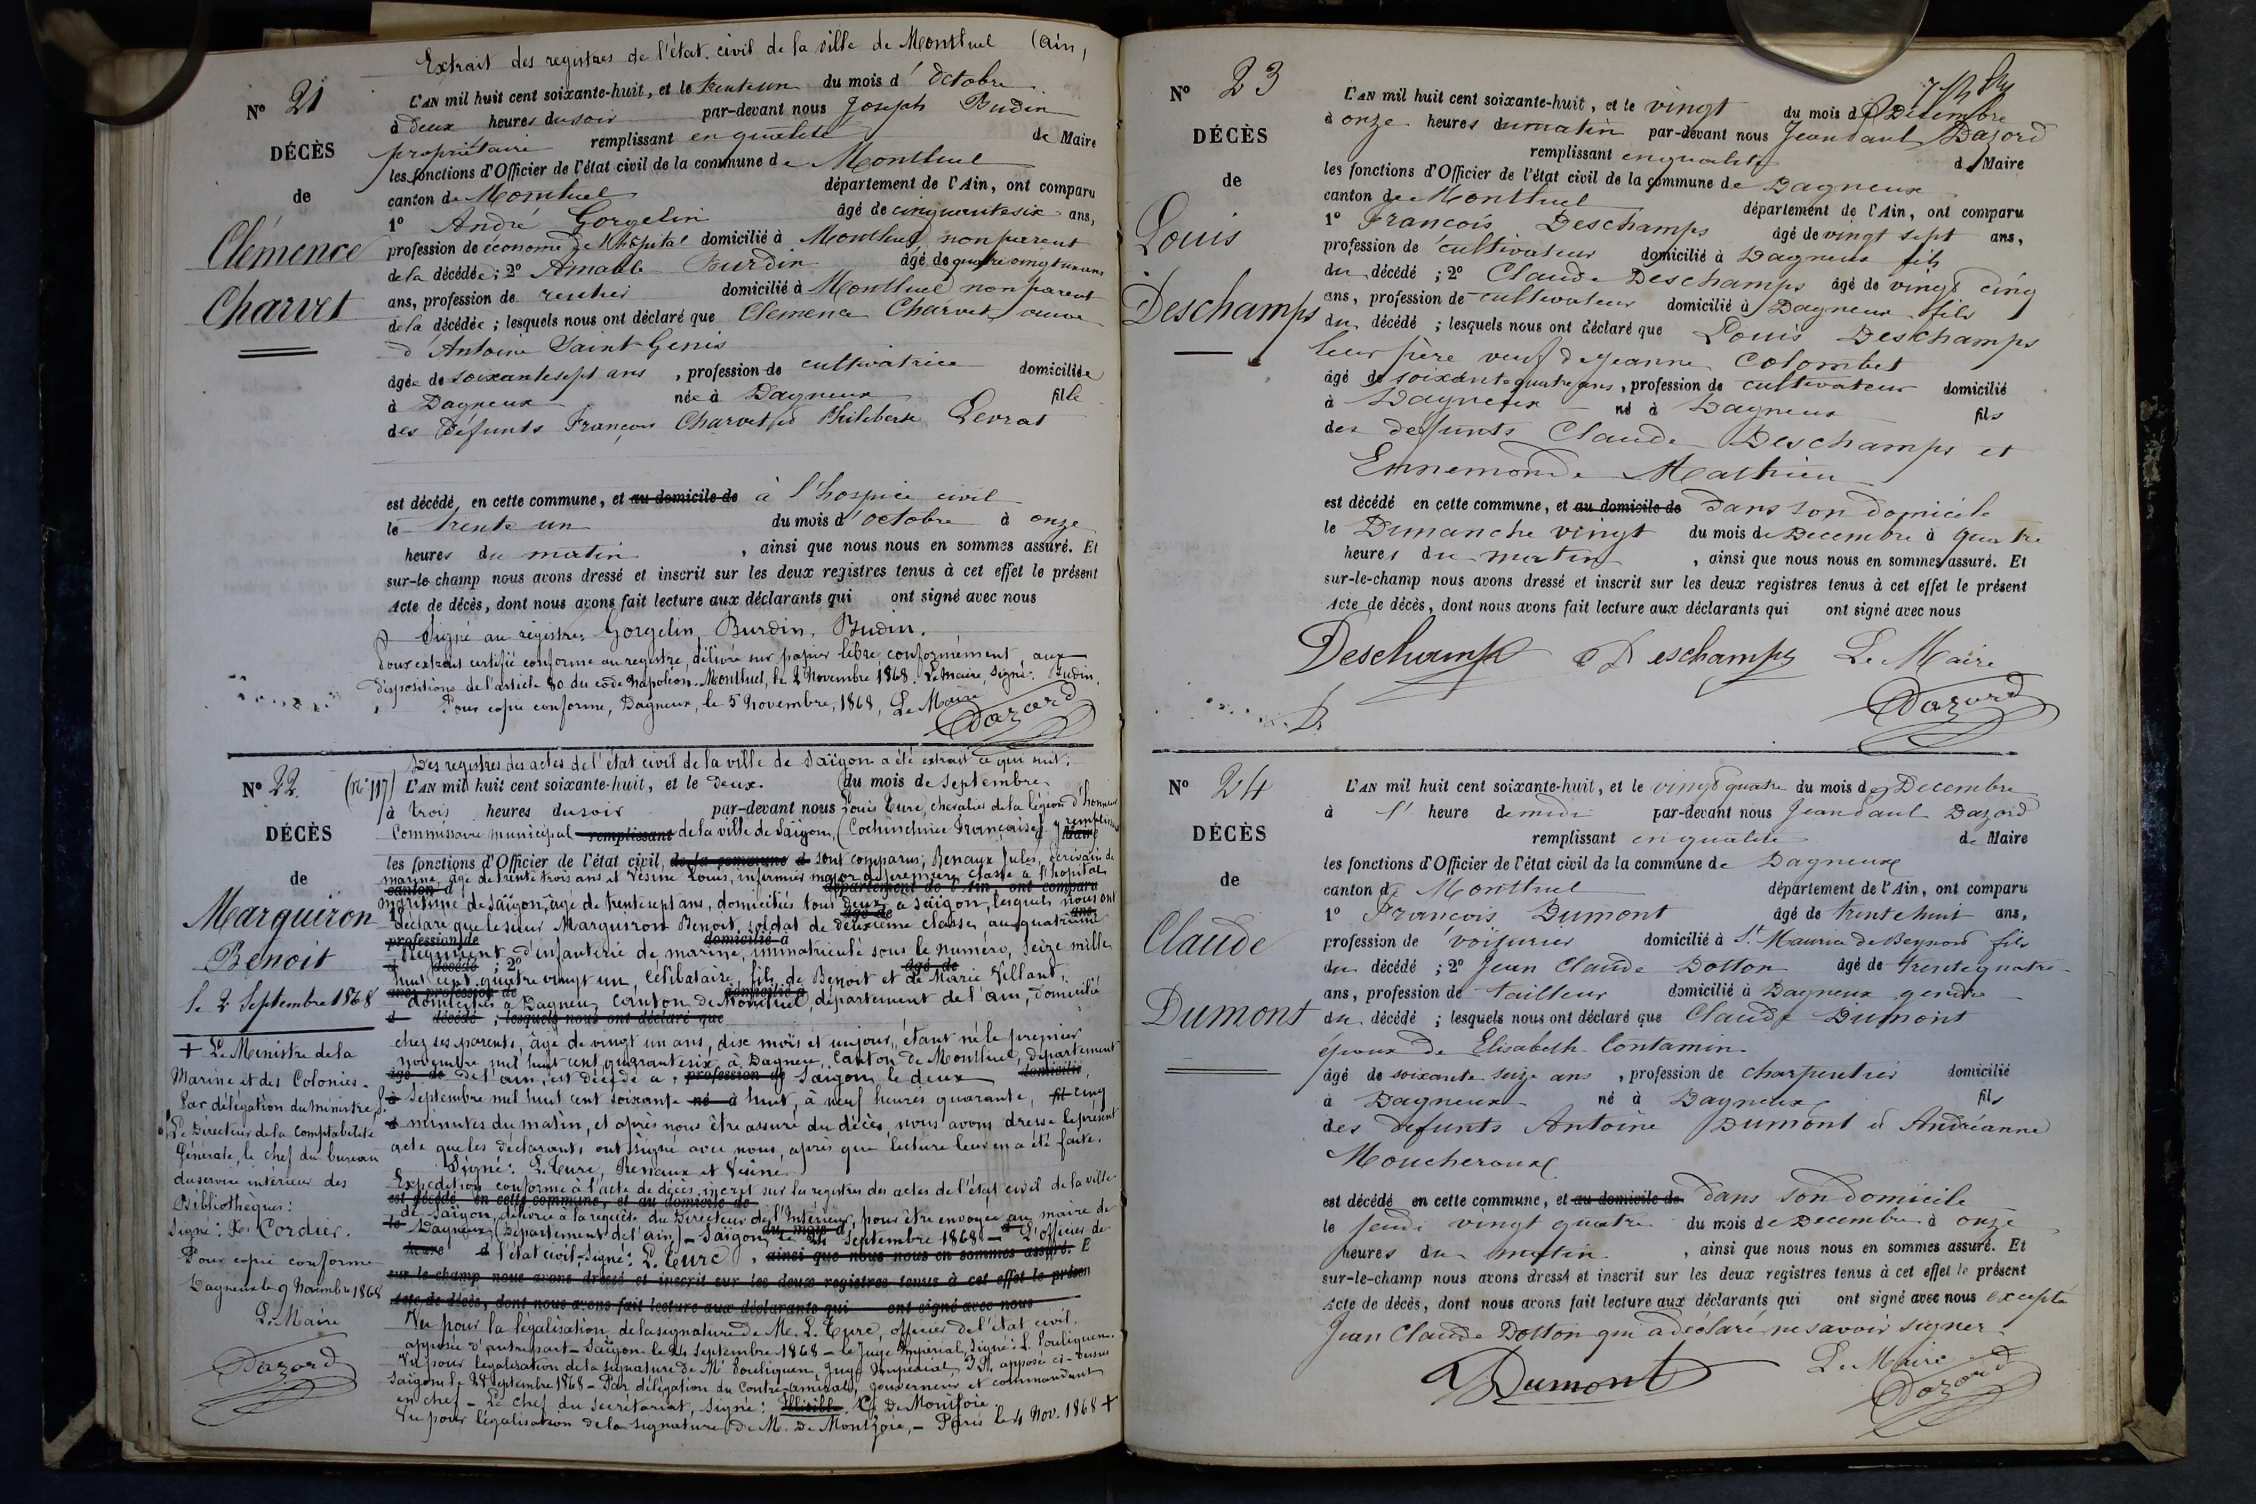 Extrait des registres de l'état civil de la ville de Montluel (Ain)
N° 21
DÉCÈS
de
Clémence
Charvet
L'AN mil huit cent soixante-huit, et le trente un du mois d'Octobre
à deux heures du soir par-devant nous Joseph Budin
propriétaire remplissant en qualité de Maire
les fonctions d'Officier de l'état civil de la commune de Montluel
canton de Montluel département de l'Ain, ont comparu
1° André Gorgelin âgé de cinquante six ans,
profession de économe de l'hôpital domicilié à Montluel non parent
de la décédée ; 2° Amable Burdin âgé de quatre vingt un ans
ans, profession de rentier domicilié à Montluel non parent
de la décédée ; lesquels nous ont déclaré que Clémence Charvet veuve
d'Antoine Saint-Genis
âgée de soixante sept ans, profession de cultivatrice domiciliée
à Dagneux née à Dagneux fille
des défunts François Charvet et Philiberte Levrat
est décédé en cette commune, et au domicile de à l'hospice civil
le trente un du mois d'octobre à onze
heures du matin, ainsi que nous nous en sommes assuré. Et
sur-le-champ nous avons dressé et inscrit sur les deux registres tenus à cet effet le présent
Acte de décès, dont nous avons fait lecture aux déclarants qui ont signé avec nous
Signé au registre, Gorgelin, Burdin, Budin.
Pour extrait certifié conforme au registre, délivré sur papier libre, conformément aux
dispositions de l'article 80 du code Napoléon. Montluel, le 2 Novembre 1868. Le Maire, Signé: Budin.
Pour copie conforme, Dagneux, le 5 Novembre, 1868, Le Maire
Dazord
N° 22
DÉCÈS
de
Marguiron
Benoit
le 2 Septembre 1868
Des registres des actes de l'état civil de la ville de Saïgon a été extrait ce qui suit:
(N° 117) L'AN mil huit cent soixante-huit, et le deux du mois de Septembre
à trois heures du soir par-devant nous Louis Turc, chevalier de la légion d'honneur
Commissaire municipal remplissant de la ville de Saïgon, (Cochinchine Française) y remplissant Maire
les fonctions d'Officier de l'état civil, de la commune d sont comparus; Renaux Jules, écrivain de
marine, âgé de trente trois ans et Vésine Louis, infirmier major de première classe à l'hôpital
canton d département de l'Ain, ont comparu
maritime de Saïgon, âgé de trente sept ans, domiciliés tous deux à Saïgon, lesquels nous ont
1° âgé de ans
déclaré que le sieur Marguiron Benoit, soldat de deuxième classe au quatrième
profession de domicilié à
Régiment d'infanterie de marine, immatriculé sous le numéro, seize mille
d décédé ; 2° âgé de
huit cent quatre vingt un, célibataire, fils de Benoit et de Marie Villant,
ans, profession de domicilié à
domiciliés à Dagneu, Canton de Montluel, département de l'ain, domicilié
d décédé ; lesquels nous ont déclaré que
chez ses parents, âgé de vingt un ans, dix mois et un jour, étant né le premier
novembre mil huit cent quarante six, à Dagneu, Canton de Montluel, département
âgé de de l'ain, est décédé à, profession de Saïgon le deux domicilié,
à Septembre mil huit cent soixante né à huit, à neuf heures quarante, fil cinq
d minutes du matin, et après nous être assuré du décès, nous avons dressé le présent
acte que les déclarants ont signé avec nous, après que lecture leur en a été faite.
Signé: L. Turc, Renaux et Vésine
Expédition conforme à l'acte de décès inscrit sur les registres des actes de l'état civil de la ville
est décédé en cette commune, et au domicile de
de Saïgon, délivrée à la requête du Directeur de l'Intérieur, pour être envoyée au maire de
le du mois d à
Dagneux (Département de l'ain) - Saïgon, le 24 Septembre 1868 - L'officier de
heure d l'état civil, Signé: L. Turc, ainsi que nous nous en sommes assuré. E
sur-le-champ nous avons dressé et inscrit sur les deux registres tenus à cet effet le présen
Acte de décès, dont nous avons fait lecture aux déclarants qui ont signé avec nous
Vu pour la légalisation de la signature de M. L. Turc, officier de l'état civil
apposée d'autre part - Saïgon le 24 Septembre 1868 - le Juge Impérial, Signé: L. Pouliquen.
Vu pour légalisation de la signature de Mr Pouliquen, Juge Impérial, apposée ci-dessus
Saïgon le 28 Septembre 1868 - Par délégation du Contre-amiral, gouverneur et commandant
en chef - Le chef du Secrétariat, Signé: Illisible De Montjoie
Vu pour légalisation de la signature de M. De Montjoie, - Paris le 4 Nov. 1868 +
+ Le Ministre de la
Marine et des Colonies.
Par délégation du Ministre
Le Directeur de la Comptabilité
Générale, le chef du bureau
du service intérieur des
Bibliothèques:
Signé: Cordier.
Pour copie conforme
Dagneux le 9 Novembre 1868
Le Maire
Dazord
N° 23
DÉCÈS
de
Louis
Deschamps
L'AN mil huit cent soixante-huit, et le vingt du mois de Décembre
à onze heures du matin par-devant nous Jean Paul Dazord
remplissant en qualité de Maire
les fonctions d'Officier de l'état civil de la commune de Dagneux
canton de Montluel département de l'Ain, ont comparu
1° François Deschamps âgé de vingt sept ans,
profession de cultivateur domicilié à Dagneux fils
du décédé ; 2° Claude Deschamps âgé de vingt cinq
ans, profession de cultivateur domicilié à Dagneux fils
du décédé ; lesquels nous ont déclaré que Louis Deschamps
leur père veuf de Jeanne Colombet
âgé de soixante quatre ans, profession de cultivateur domicilié
à Dagneux né à Dagneux fils
des défunts Claude Deschamps et
Ennemonde Mathieu
est décédé en cette commune, et au domicile de dans son domicile
le Dimanche vingt du mois de Décembre à quatre
heures du matin, ainsi que nous nous en sommes assuré. Et
sur-le-champ nous avons dressé et inscrit sur les deux registres tenus à cet effet le présent
Acte de décès, dont nous avons fait lecture aux déclarants qui ont signé avec nous
Deschamps Deschamps Le Maire
Dazord
N° 24
DÉCÈS
de
Claude
Dumont
L'AN mil huit cent soixante-huit, et le vingt quatre du mois de Décembre
à l' heure de midi par-devant nous Jean Paul Dazord
remplissant en qualité de Maire
les fonctions d'Officier de l'état civil de la commune de Dagneux
canton de Montluel département de l'Ain, ont comparu
1° François Dumont âgé de trente huit ans,
profession de voiturier domicilié à St Maurice de Beynost fils
du décédé ; 2° Jean Claude Dotton âgé de trente quatre
ans, profession de tailleur domicilié à Dagneux gendre
du décédé ; lesquels nous ont déclaré que Claude Dumont
époux de Elisabeth Contamin
âgé de soixante seize ans, profession de charpentier domicilié
à Dagneux né à Dagneux fils
des défunts Antoine Dumont et Andréanne
Moucheroux
est décédé en cette commune, et au domicile de dans son domicile
le Jeudi vingt quatre du mois de Décembre à onze
heures du matin, ainsi que nous nous en sommes assuré. Et
sur-le-champ nous avons dressé et inscrit sur les deux registres tenus à cet effet le présent
Acte de décès, dont nous avons fait lecture aux déclarants qui ont signé avec nous excepté
Jean Claude Dotton qui a déclaré ne savoir signer
Dumont Le Maire
Dazord